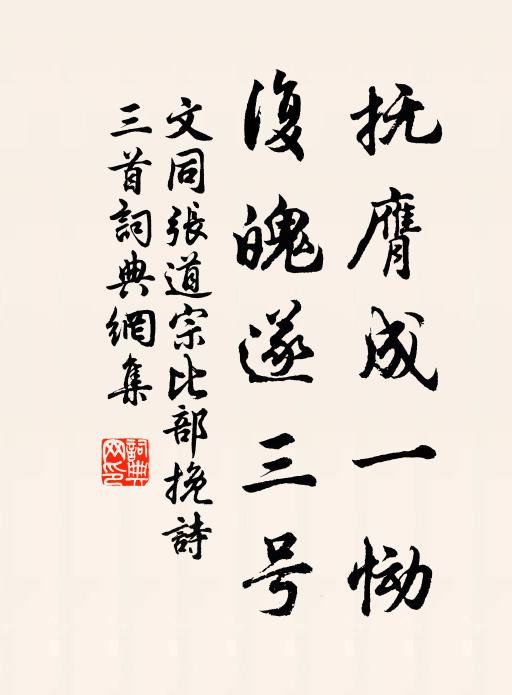 抚膺成一恸
復魄遂三号
文同張道宗比部挽詩
三首詞典網集
詞典网印